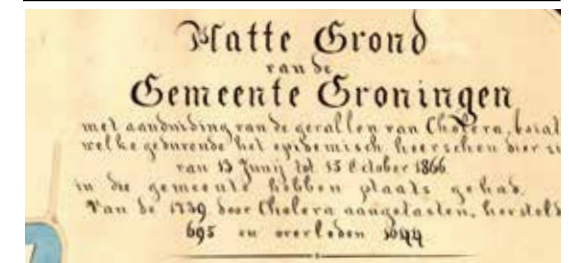 Platte Grond
van de
Gemeente Groningen
met aanduiding van de gevallen van Cholera,
welke gedurende het epidemisch heerschen dier
van 13 Junij tot 15 October 1866
in die gemeente hebben plaats gehad.
Van de 1739 door Cholera aangetasten, hersteld
695 en overleden 1044